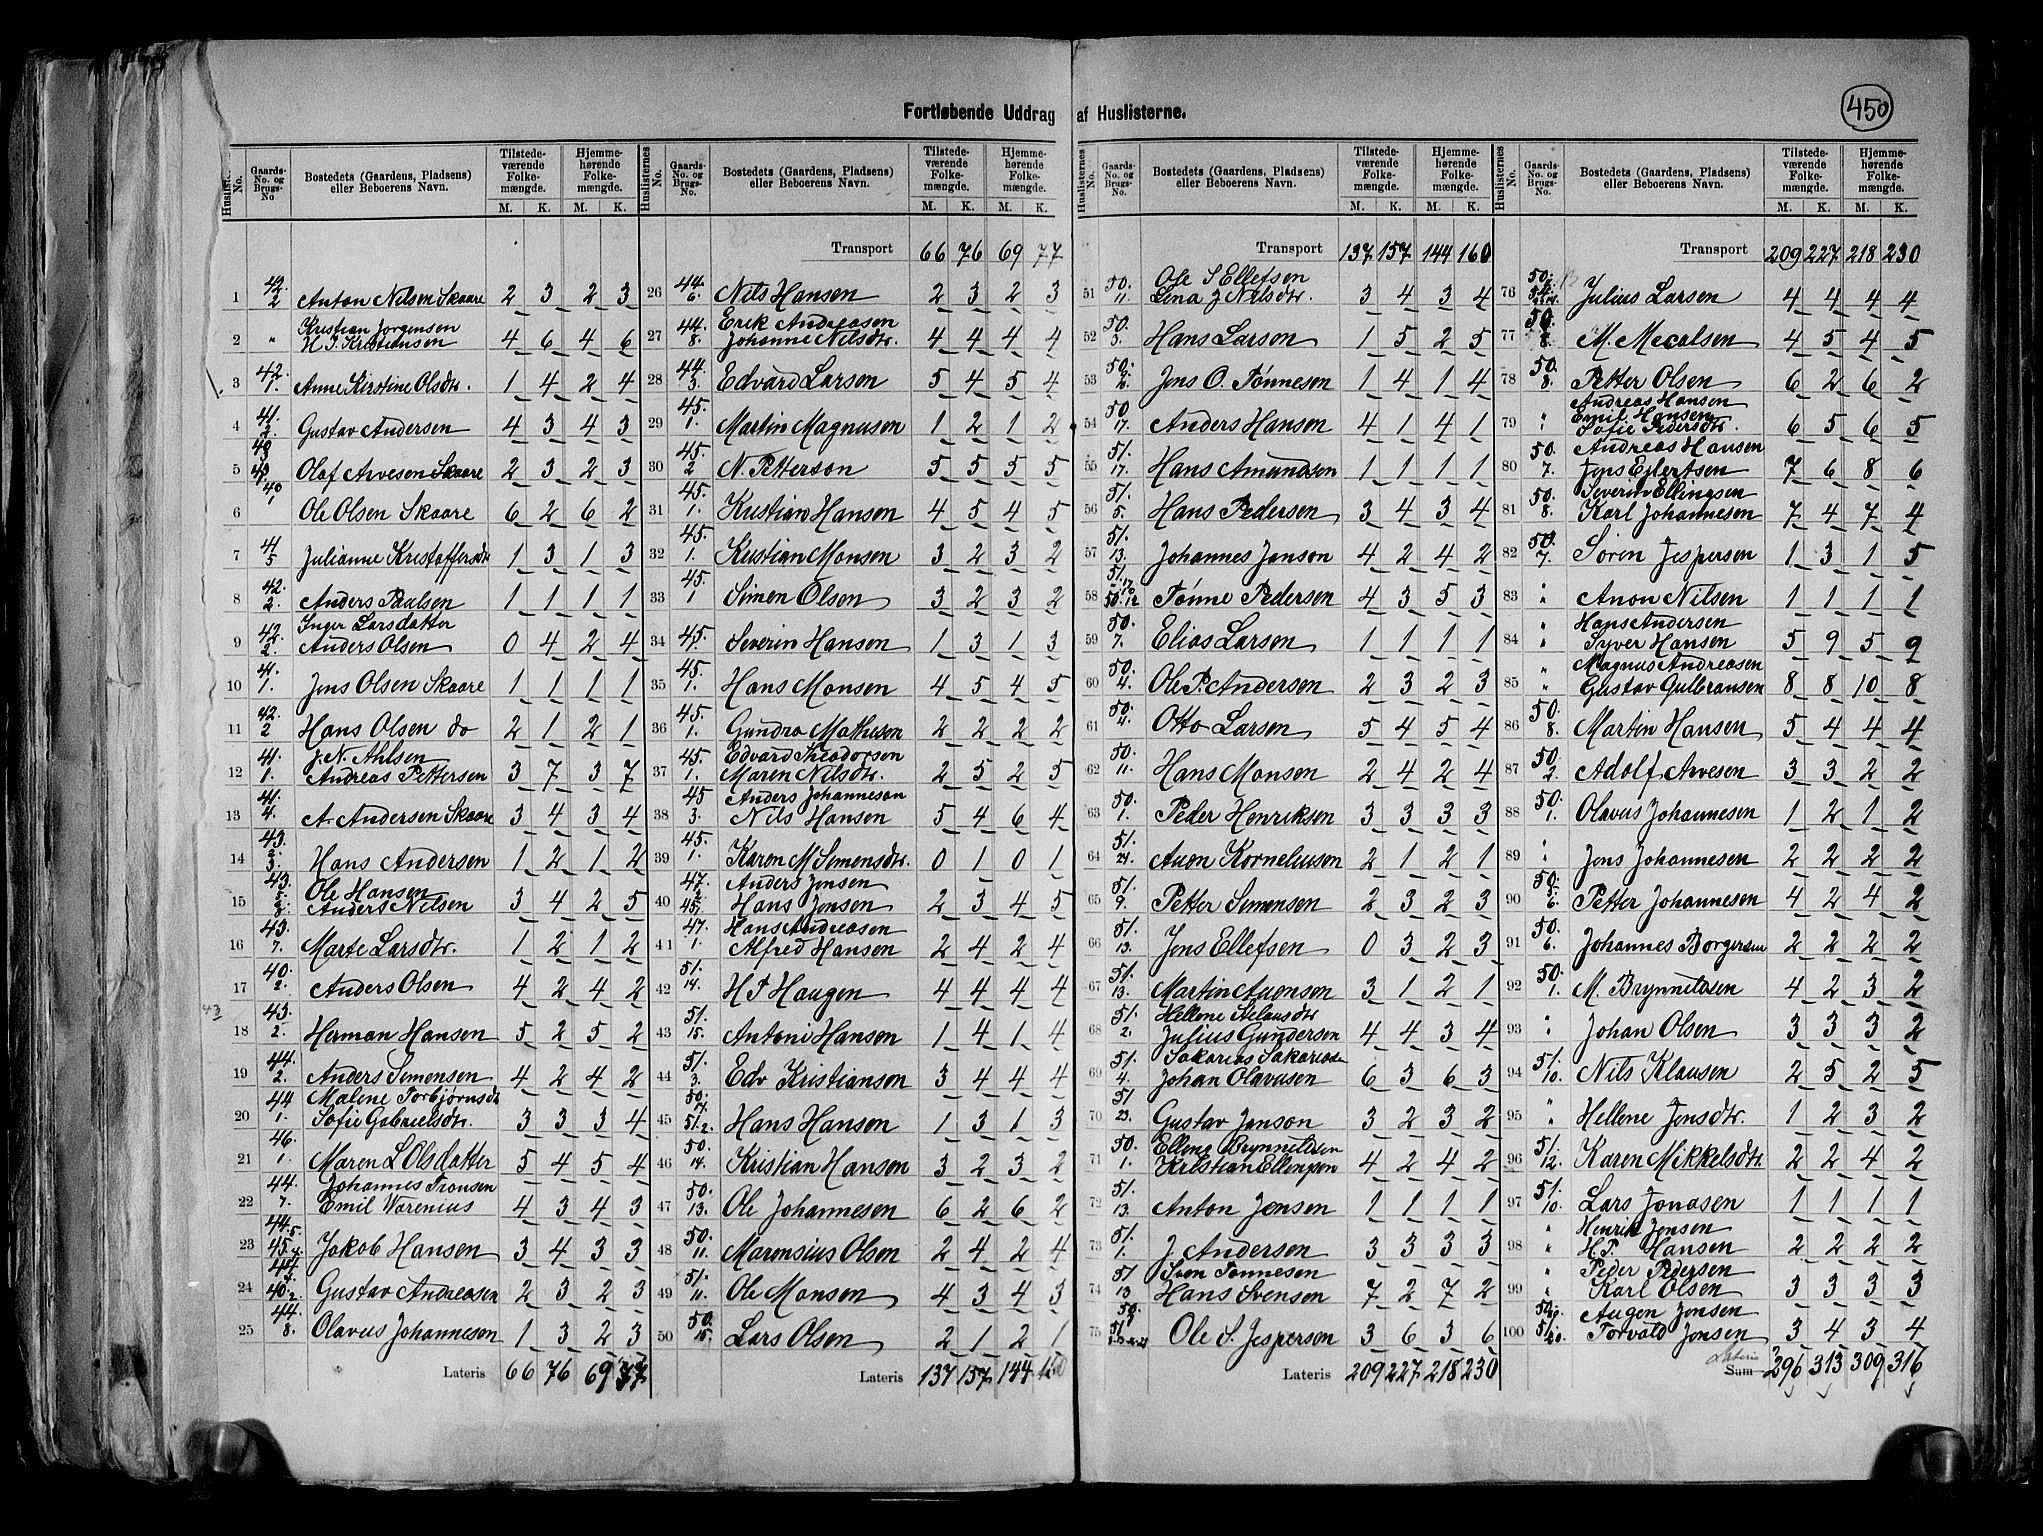 450
Fortløbende Uddrag af Huslisterne.
Huslisternes No. Gaards-No. og Brugs-No. Bostedets (Gaardens, Pladsens) eller Beboerens Navn. Tilstedeværende Folkemængde. M. K. Hjemmehørende Folkemængde. M. K.
1 42/2 Anton Nilsen Skaare 2 3 2 3
Kristian Jørgensen
2 " H. J. Kristiansen 4 6 4 6
3 42/1. Anne Kirstine Olsdtr. 1 4 2 4
4 41/2. Gustav Andersen 4 3 4 3
5 Olaf Arvesen Skaare 2 3 2 3
6 40/1 Ole Olsen Skaare 6 2 6 2
7 41/5 Julianne Kristoffersdtr 1 3 1 3
8 42/2. Anders Paulsen 1 1 1 1
Inger Larsdatter
9 42/2. Anders Olsen 0 4 2 4
10 41/1. Jens Olsen Skaare 1 1 1 1
11 42/2 Hans Olsen do 2 1 2 1
J. N. Ahlsen
12 41/1. Andreas Pettersen 3 7 3 7
13 41/4. A. Andersen Skaare 3 4 3 4
14 43. 2. 3. Hans Andersen 1 2 1 2
Ole Hansen
15 43. 5. 8. Anders Nilsen 3 4 2 5
16 43/7. Marte Larsdtr. 1 2 1 2
17 40/2. Anders Olsen 4 2 4 2
43
18 43/2. Herman Hansen 5 2 5 2
19 44/2. Anders Simensen 4 2 4 2
Malene Torbjørnsdtr
20 44/1. Sofie Gabrielsdtr. 3 3 3 4
21 46/1. Maren L Olsdatter 5 4 5 4
Johannes Tronsen
22 44/7. Emil Warenius 4 3 4 3
23 44/5. 45/4. Jakob Hansen 3 4 3 3
24 40/2 Gustav Andreasen 2 3 2 3
25 44/8. Olavus Johannesen 1 3 2 3
Lateris 66 76 69 77
Huslisternes No. Gaards-No. og Brugs-No. Bostedets (Gaardens, Pladsens) eller Beboerens Navn. Tilstedeværende Folkemængde. M. K. Hjemmehørende Folkemængde. M. K.
Transport 66 76 69 77
26 44/6. Nils Hansen 2 3 2 3
Erik Andreasen
27 44/8. Johanne Nilsdtr. 4 4 4 4
28 44/3. Edvard Larsen 5 4 5 4
29 45/1. Martin Magnusen 1 2 1 2
30 45/2 N. Petterson 5 5 5 5
31 45/1. Kristian Hansen 4 5 4 5
32 45/1. Kristian Monsen 3 2 3 2
33 45/1 Simen Olsen 3 2 3 2
34 45/1. Severin Hansen 1 3 1 3
35 45/1. Hans Monsen 4 5 4 5
36 45/1. Gundro Mathisen 2 2 2 2
Edvard Theodorsen
37 45/1. Maren Nilsdtr. 2 5 2 5
Anders Johannesen
38 45/3. Nils Hansen 5 4 6 4
39 45/1. Karen M Simensdtr. 0 1 0 1
Anders Jensen
40 47. 45. Hans Jensen 2 3 4 5
Hans Andreasen
41 47/1. Alfred Hansen 2 4 2 4
42 51/14. H P Haugen 4 4 4 4
43 51/15. Antoni Hansen 1 4 1 4
44 51/3. Edv Kristiansen 3 4 4 4
45 50/14. 51/2 Hans Hansen 1 3 1 3
46 50/14. Kristian Hansen 3 2 3 2
47 50/13. Ole Johannesen 6 2 6 2
48 50/11. Marensius Olsen 2 4 2 4
49 51/11. Ole Monsen 4 3 4 3
50 50/15. Lars Olsen 2 1 2 1
Lateris 137 157 144 160
Huslisternes No. Gaards-No. og Brugs-No. Bostedets (Gaardens, Pladsens) eller Beboerens Navn. Tilstedeværende Folkemængde. M. K. Hjemmehørende Folkemængde. M. K.
Transport 137 157 144 160
Ole S Ellefsen
51 50/11. Lena J Nilsdtr. 3 4 3 4
52 50/3. Hans Larson 1 5 2 5
53 50/2. Jens O. Tønnesen 1 4 1 4
54 50/17. Anders Hansen 4 1 4 1
55 51/17. Hans Amundsen 1 1 1 1
56 51/5. Hans Pedersen 3 4 3 4
57 51/13. Johannes Janson 4 2 4 2
58 51/17 50/12 Tønne Pedersen 4 3 5 3
59 50/7. Elias Larsen 1 1 1 1
60 50/4. Ole P. Andersen 2 3 2 3
61 50/4. Otto Larsen 5 4 5 4
62 50/11. Hans Monsen 2 4 2 4
63 50/1. Peder Henriksen 3 3 3 3
64 51/24. Auon Korneliusen 2 1 2 1
65 51/9. Petter Simensen 2 3 2 3
66 51/13. Jens Ellefsen 0 3 2 3
67 51/13. Martin Auensen 3 1 2 1
Hellene Klausdtr
68 51/2. Julius Gundersen 4 4 3 4
Sakarias Sakariasen
69 51/4. Johan Olavusen 6 3 6 3
70 51/23. Gustav Janson 3 2 3 2
Elleng Brynnildsen
71 50/1. Kristian Ellengsen 4 2 4 2
72 51/13. Anton Jensen 1 1 1 1
73 51/1. J. Andersen 3 3 3 3
Sven Tønnesen
74 51/13 Hans Svensen 7 2 7 2
75 Ole S. Jespersen 3 6 3 6
Lateris 209 227 218 230
Huslisternes No. Gaards-No. og Brugs-No. Bostedets (Gaardens, Pladsens) eller Beboerens Navn. Tilstedeværende Folkemængde. M. K. Hjemmehørende Folkemængde. M. K.
Transport 209 227 218 230
76 Julius Larsen 4 4 4 4
77 50/8. M. Mecalsen 4 5 4 5
78 50/8. Petter Olsen 6 2 6 2
Andreas Hansen
Emil Hansen
79 " Sofie Pedersdtr. 6 5 6 5
Andreas Hansen
80 50/7. Jens Ejlertsen 7 6 8 6
Severin Ellingsen
81 50/8. Karl Johannesen 7 4 7 4
82 50/7. Søren Jespersen 1 3 1 5
83 " Anon Nilsen 1 1 1 1
Hans Andersen
84 " Syver Hansen 5 9 5 9
Magnus Andreasen
85 " Gustav Gulbransen 8 8 10 8
86 50/8. Martin Hansen 5 4 4 4
87 50/2. Adolf Arvesen 3 3 2 2
88 50/1. Olavus Johannesen 1 2 1 2
89 " Jens Johannesen 2 2 2 2
90 50. 5. 6. Petter Johannesen 4 2 4 2
91 50/6. Johannes Borgersen 2 2 2 2
92 50/1. M. Brynnildsen 4 2 3 2
93 " Johan Olsen 3 3 3 2
94 51/10. Nils Klausen 2 5 2 5
95 " Hellene Jensdtr. 1 2 3 2
96 51/12. Karen Mikkelsdtr. 2 2 4 2
97 51/10. Lars Jonasen 1 1 1 1
Henrik Jensen
98 " H. P. Hansen 2 2 2 2
Peder Pedersen
99 " Karl Olsen 3 3 3 3
Augon Jensen
100 Torvald Jensen 3 4 3 4
Lateris
Sum 296 313 309 316